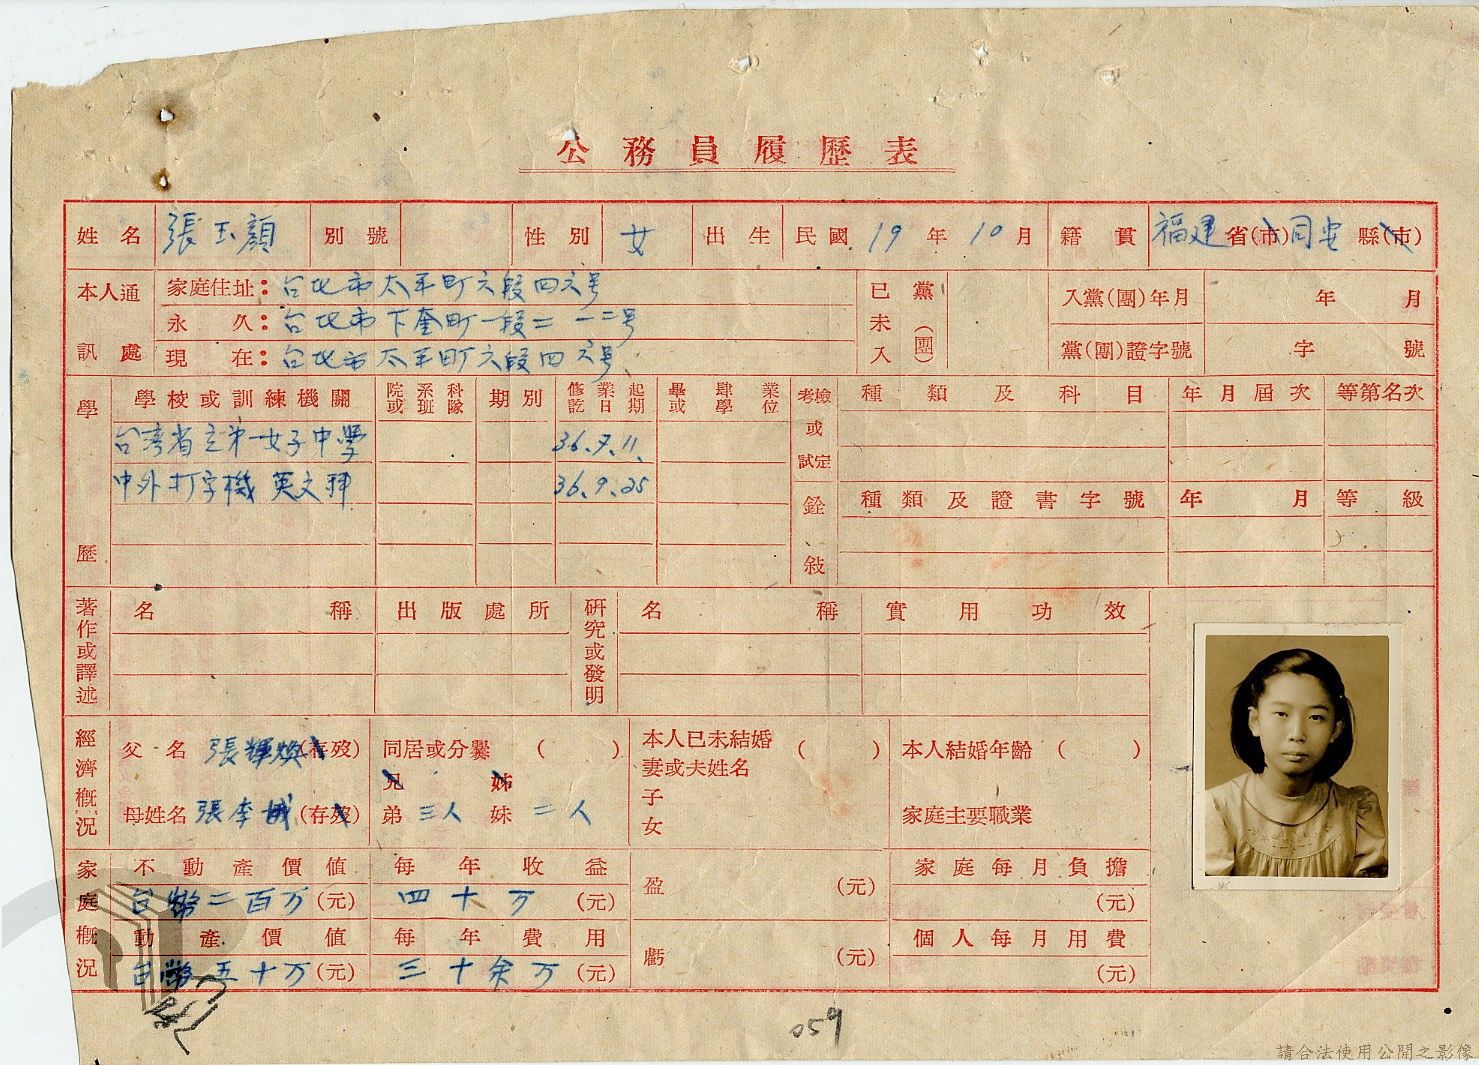 公務員履歷表
姓名 張玉顏 別號 性別 女 出生 民國 19 年 10 月 籍貫 福建 省(市) 同安 縣(市)
本人通訊處 家庭住址：台北市太平町六段四六号
永久：台北市下奎町一段二一二号
現在：台北市太平町六段四六号
已未入黨(團) 入黨(團)年月 年 月
黨(團)證字號 字 號
學歷 學校或訓練機關 院或 系班 科隊 期別 修業起訖日期 畢或 肆學 業位
台湾省立第一女子中學 36.7.11.
中外打字機 英文 36.9.25
考檢或試定 種類及科目 年月屆次 等第名次
銓敍 種類及證書字號 年 月 等級
著作或譯述 名稱 出版處所 研究或發明 名稱 實用功效
經濟概況 父名 張輝煥 (存歿) 同居或分爨 ( ) 本人已未結婚 ( ) 本人結婚年齡 ( )
妻或夫姓名
兄 姊
母姓名 張李 (存歿) 弟 三人 妹 二人 子女 家庭主要職業
家庭概況 不動產價值 每年收益 盈 (元) 家庭每月負擔
台幣二百万 (元) 四十万 (元) (元)
動產價值 每年費用 虧 (元) 個人每月用費
台幣五十万 (元) 三十余万 (元) (元)
059
請合法使用公開之影像